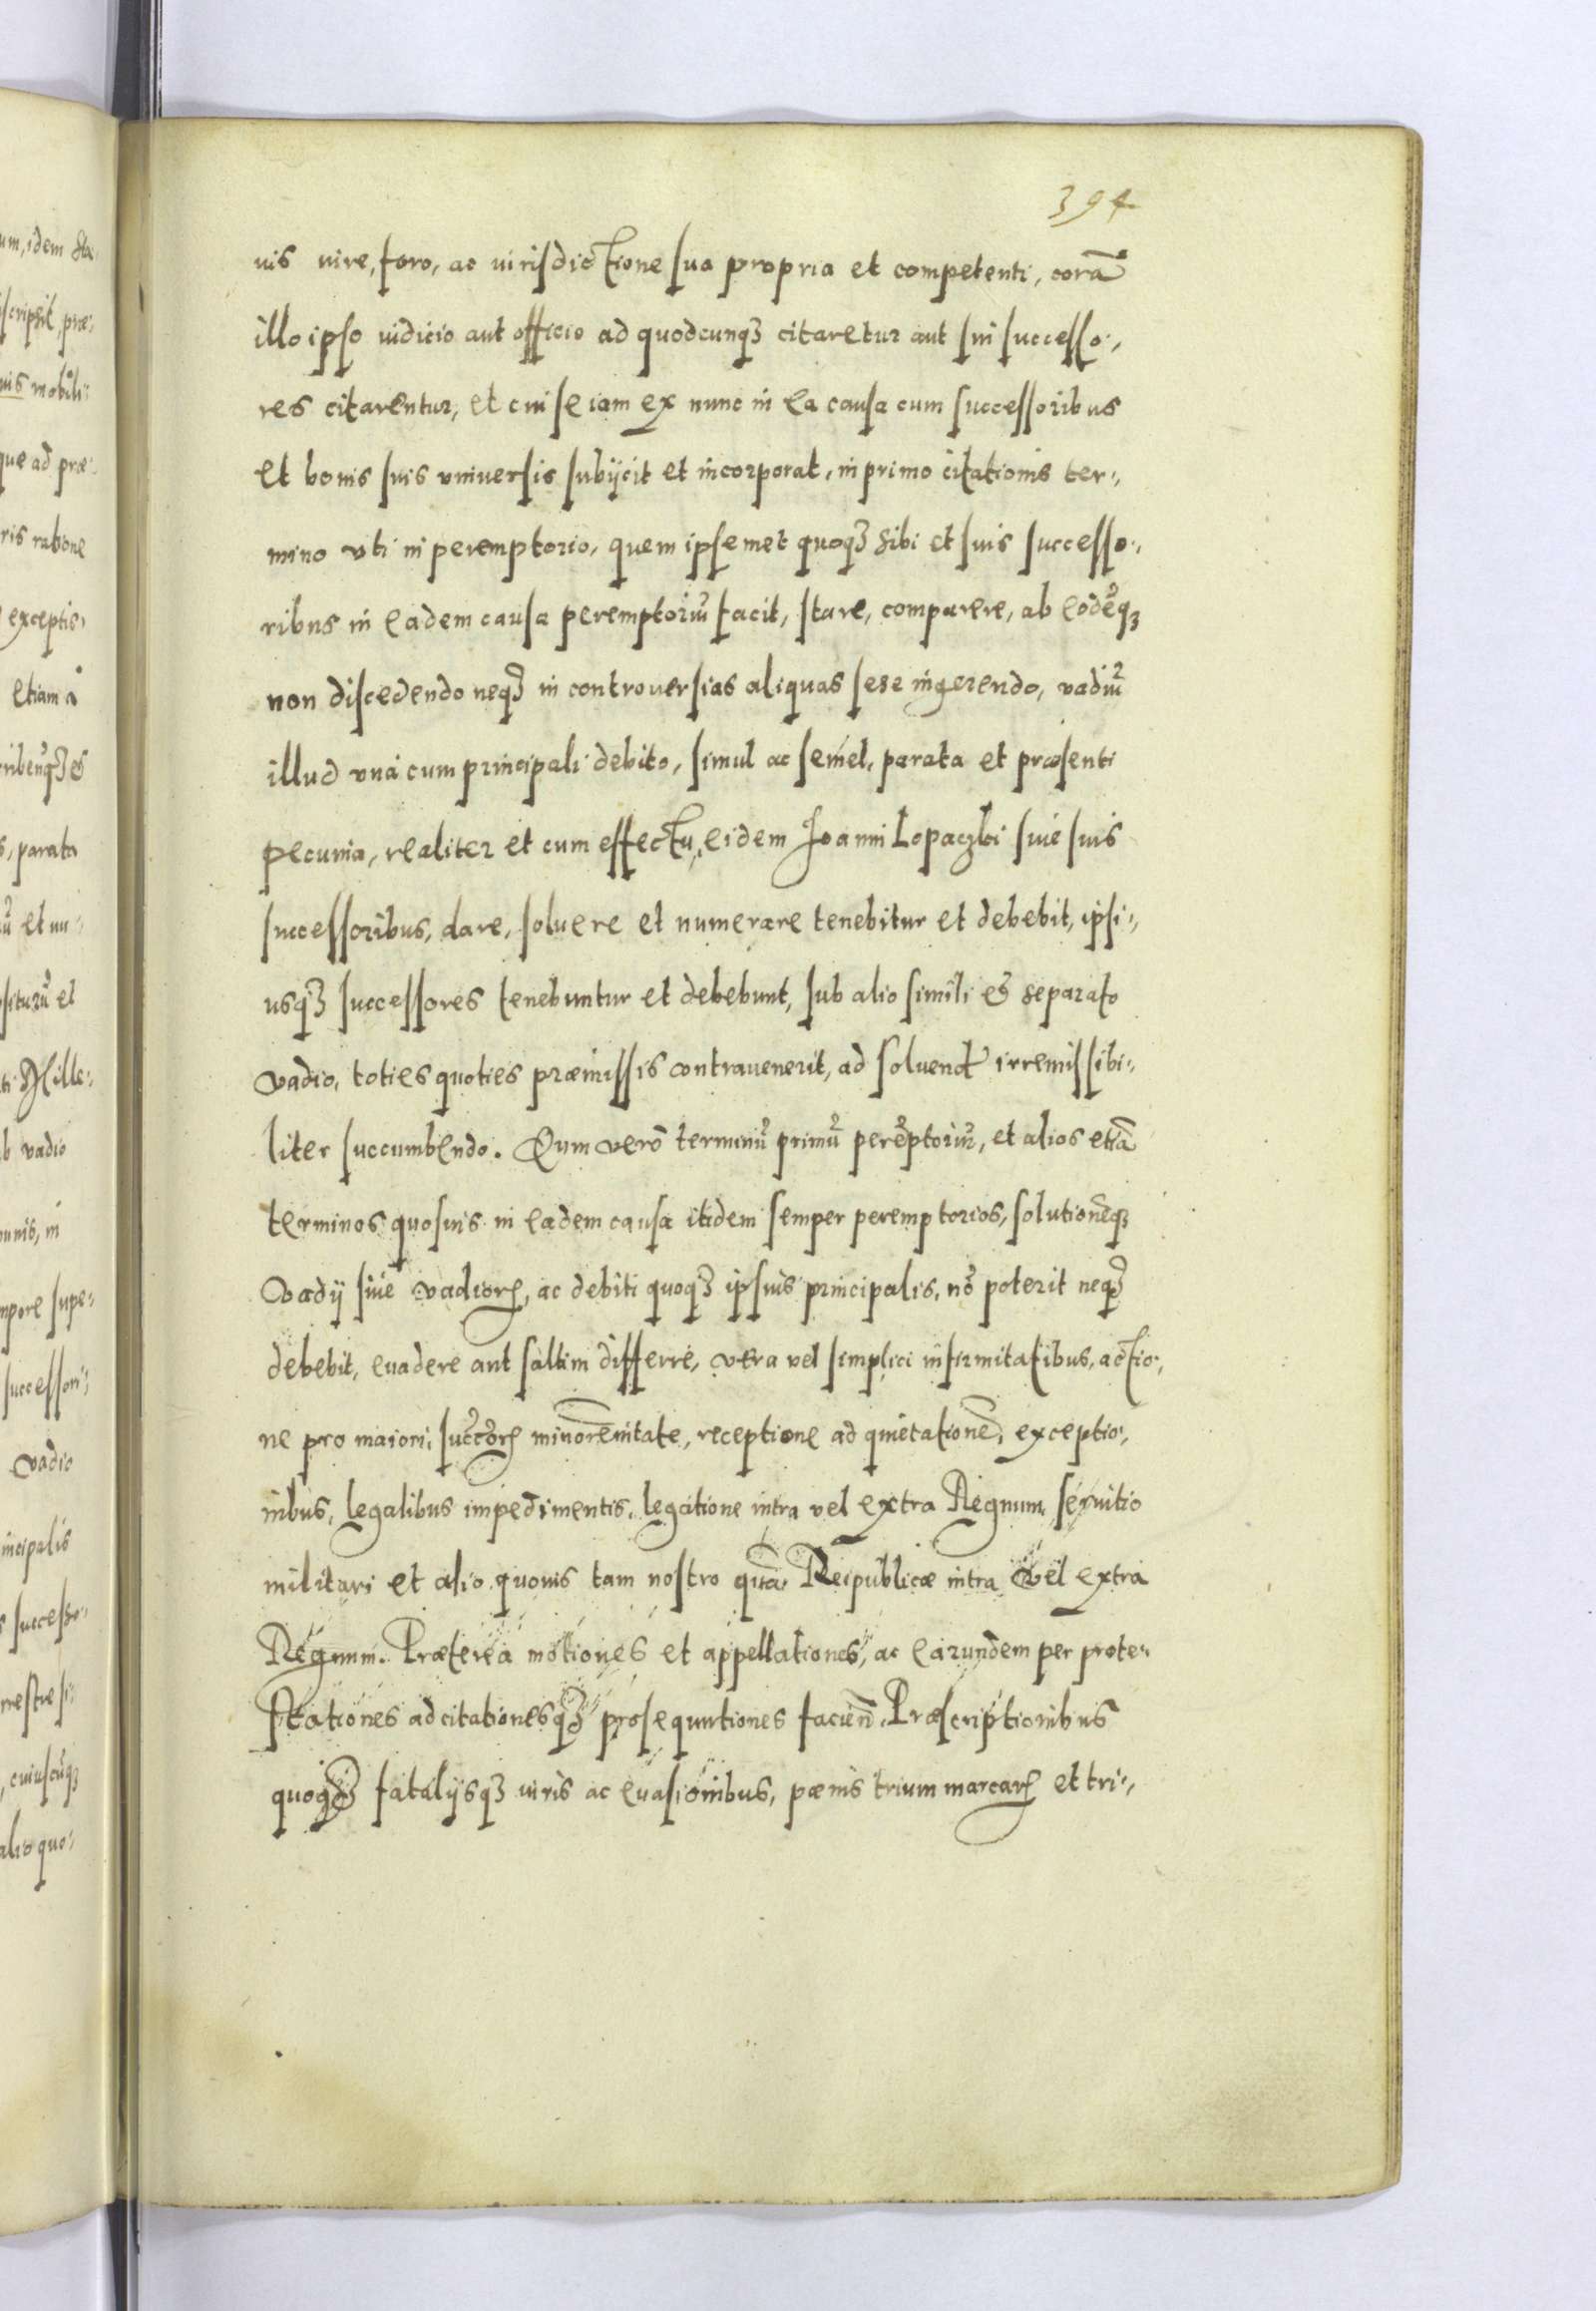 394
uis iure, foro, ac iurisdictione sua propria et competenti, corã
illo ipso iudicio aut officio ad quodcunqꝫ citaretur aut sui successo-
res citarentur, et cui se iam ex nunc in ea causa cum successoribus
et bonis suis vniuersis subijcit et incorporat, in primo citationis ter-
mino vti in peremptorio, quem ipsemet quoqꝫ sibi et suis successo-
ribus in eadem causa peremptoriũ facit, stare, comparere, ab eodẽqꝫ
non discedendo neqꝫ in controuersias aliquas sese ingerendo, vadiũ
illud vná cum principali debito, simul ac semel, parata et præsenti
pecunia, realiter et cum effectu, eidem Joanni Lopaczki siue suis
successoribus, dare, soluere et numerare tenebitur et debebit, ipsi-
usqꝫ successores tenebuntur et debebunt, sub alio simili & separato
vadio, toties quoties præmissis contrauenerit, ad soluend irremissibi-
liter succumbendo. Qum verò terminũ primũ perẽptoriũ, et alios etiã
terminos quosuis in eadem causa itidem semper peremptorios, solutionẽqꝫ
vadij siue vadiorꝝ, ac debiti quoqꝫ ipsius principalis, nõ poterit neqꝫ
debebit, euadere aut saltim differre, vera vel simplici infirmitatibus, actio-
ne pro maiori, succorꝝ minorennitate, receptione ad quietationẽ, exceptio-
nibus, legalibus impedimentis, legatione intra vel extra Regnum, seruitio
militari et alio quouis tam nostro quã Reipublicæ intra vel extra
Regnum. Præterea motiones et appellationes, ac earundem per prote-
stationes ad citationesqꝫ prosequutiones faciẽn. Præscriptionibus
quoqꝫ fatalijsqꝫ iuris ac euasionibus, pænis trium marcarꝝ et tri-